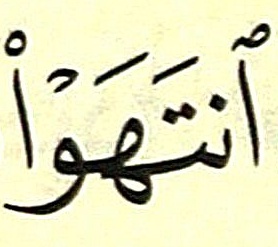 ٱنتَهَوۡا۟